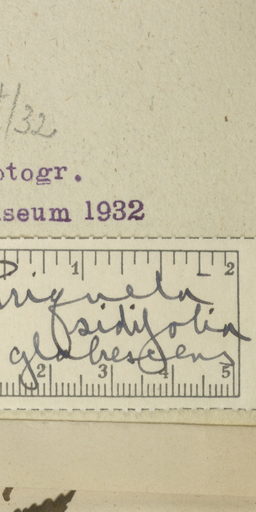 /32
otogr.
seum 1932
1 2
riqueta
sidifolia
glabrescens
2 3 4 5